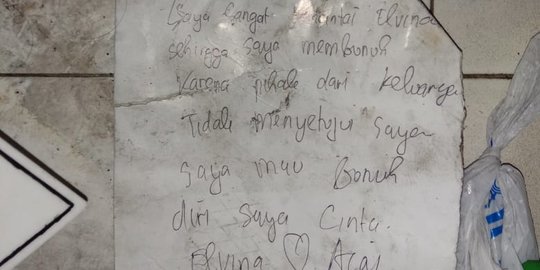 Saya sangat mencintai Elvina
sehingga saya membunuh
Karena pihak dari keluarga
Tidak menyetujui saya
saya mau Bonuh
diri saya Cinta.
Elvina ♡ Acai